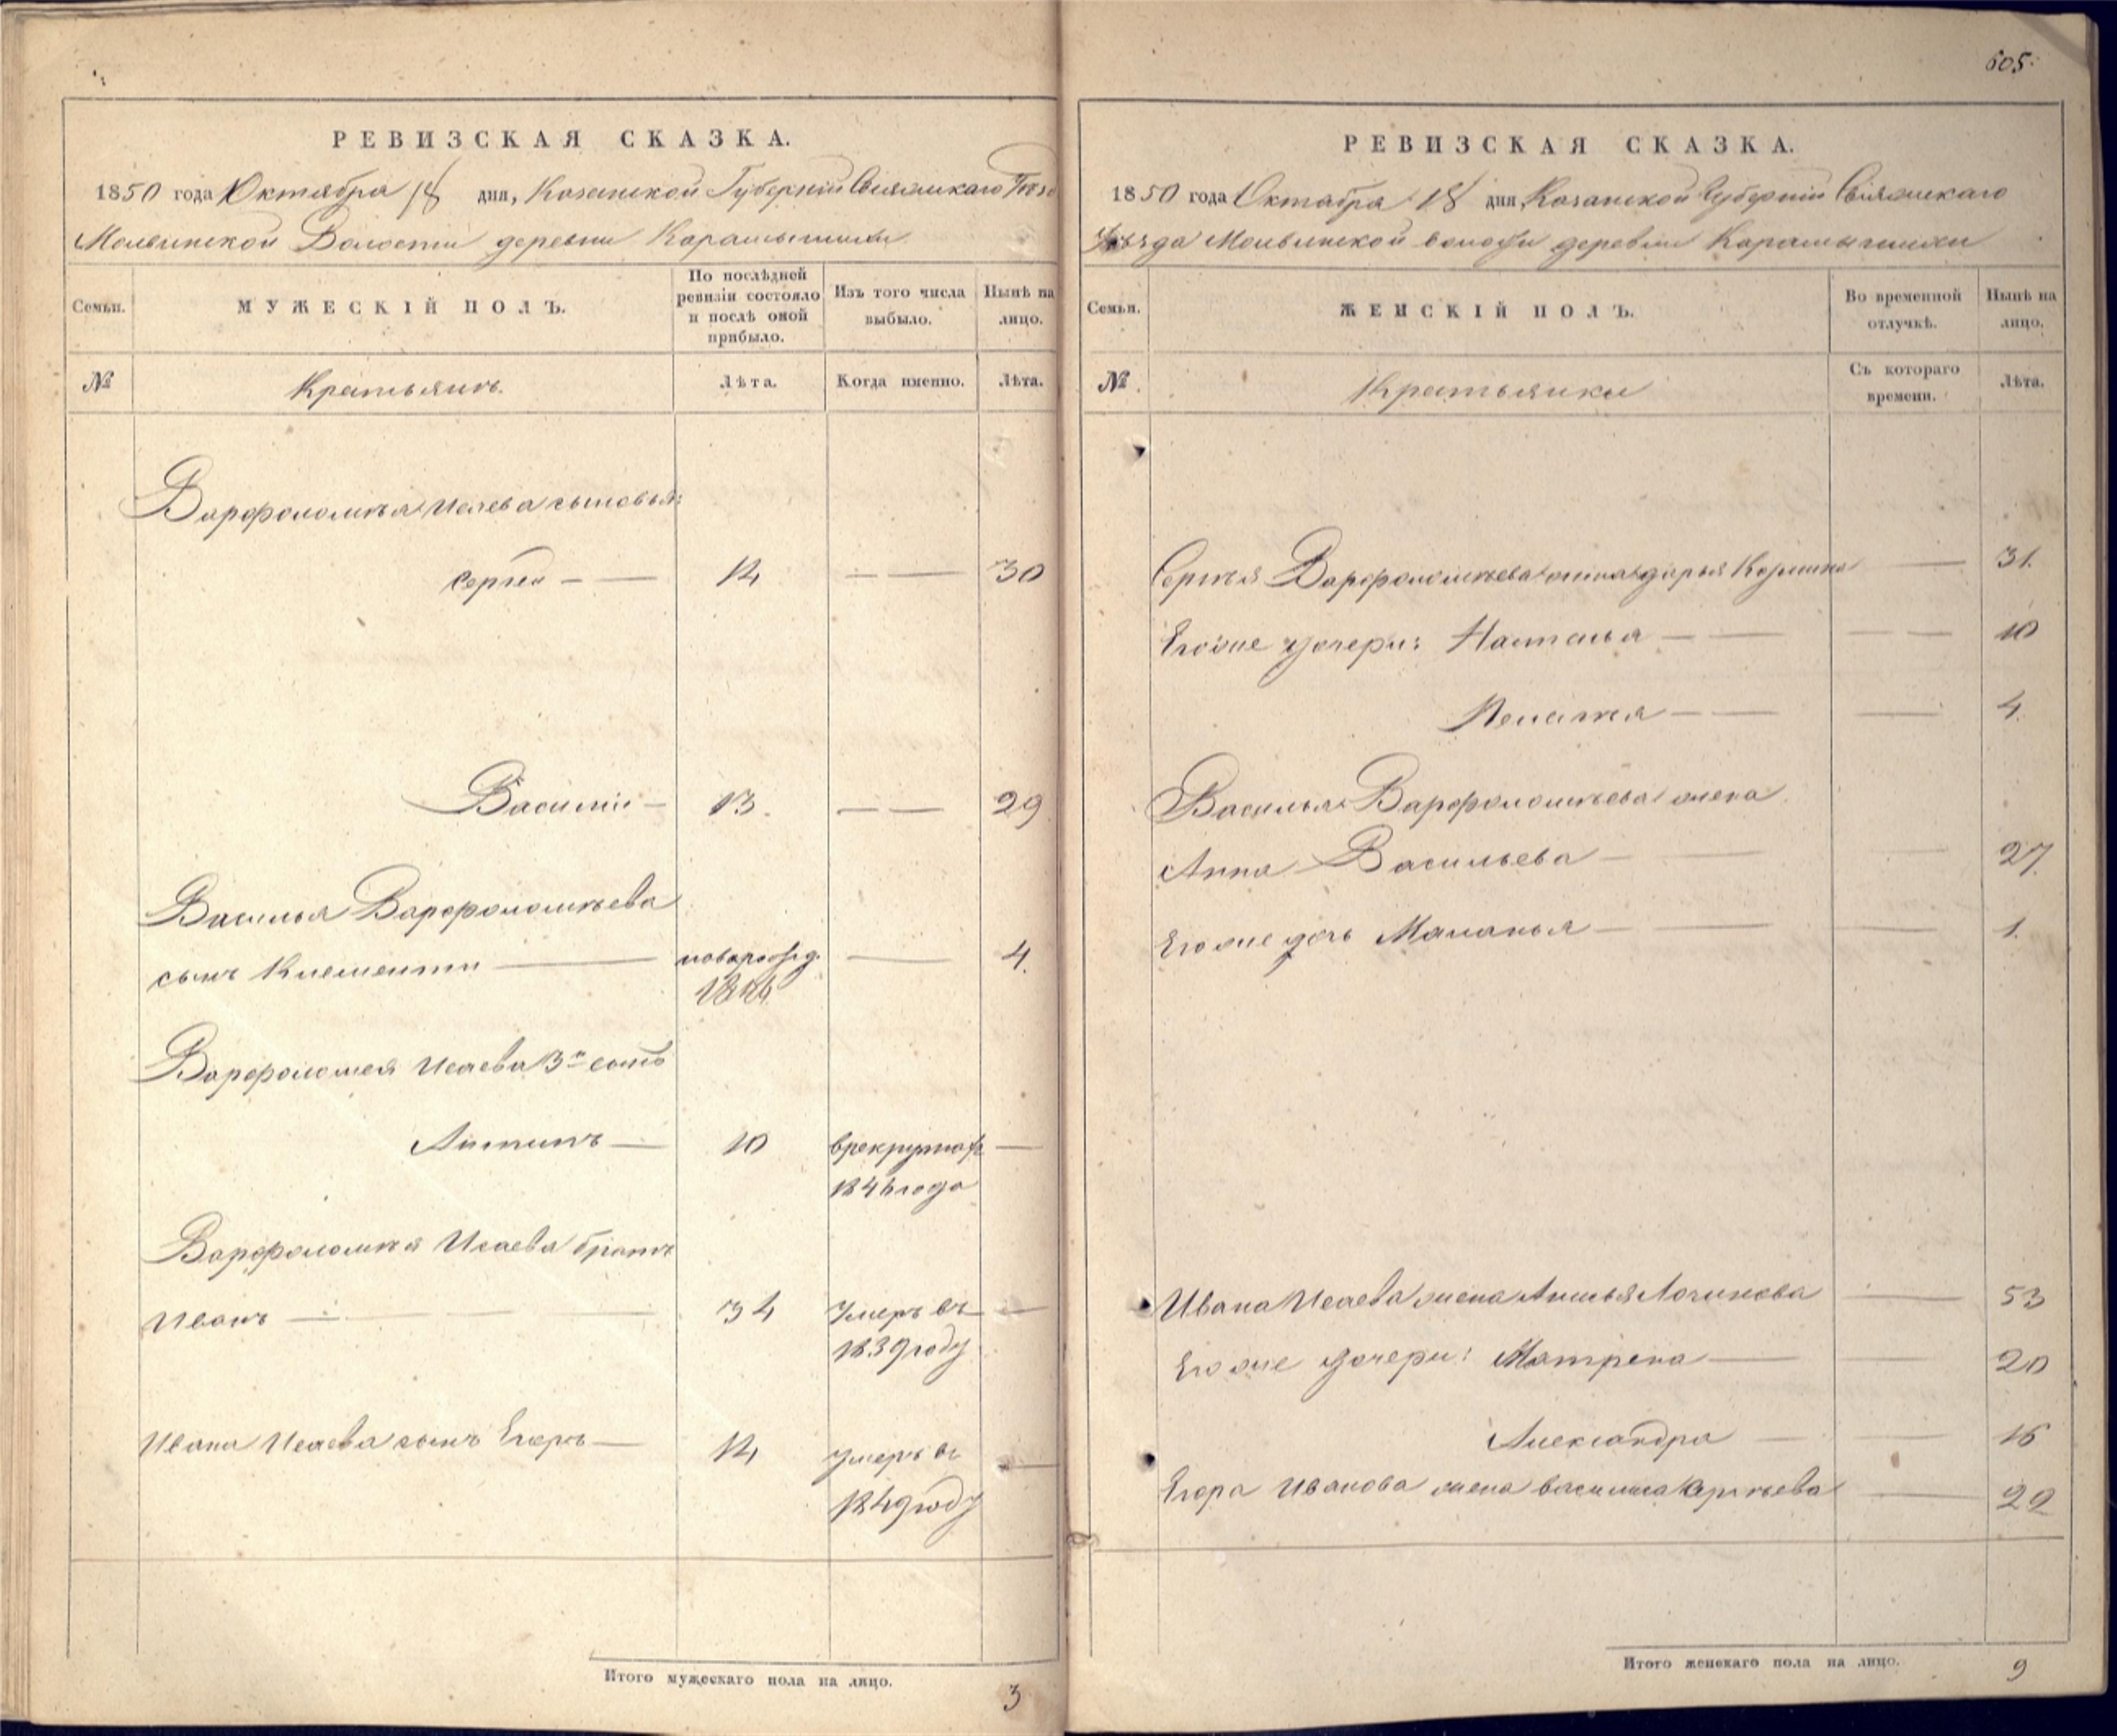 605.
РЕВИЗСКАЯ СКАЗКА.
1850 года Октября 18 дня, Казанской Губернии Свіяжскаго
Молвинской Волости деревни
Семьи.
МУЖЕСКІЙ ПОЛЪ.
По послѣдней ревизіи состояло и послѣ оной прибыло.
Изъ того числа выбыло.
Нынѣ на лицо.
№
Крестьянъ.
Лѣта.
Когда именно.
Лѣта.
Варфоломѣя Исаева сыновья:
Сергей 14 30
Василій 13. 29
Василья Варфоломѣева
сынъ Клементи новорожд. 4.
1846
Варфоломея Исаева 3й сынъ
Антипъ 10 в рекрутахъ
года
Варфоломѣя Исаева братъ
Иванъ 34 умеръ въ
1839 году
Ивана Исаева сынъ Егоръ 14 умеръ въ
1849 году
Итого мужескаго пола на лицо. 3
РЕВИЗСКАЯ СКАЗКА.
1850 года Октября 18 дня Казанской Губерніи Свіяжскаго
Уѣзда Молвинской волости деревни
Семьи.
ЖЕНСКІЙ ПОЛЪ.
Во временной отлучкѣ.
Нынѣ на лицо.
№
Крестьянки
Съ котораго времени.
Лѣта.
Сергѣя Варфоломѣева жена Дарья 31.
Егоже дочери: Наталья 10
Пелагѣя 4.
Василья Варфоломѣева жена
Анна Васильева 27.
Егоже дочь Маланья 1.
Ивана Исаева жена 53
Егоже дочери: Матрена 20
Александра 16
Егора Иванова жена Василиса 29
Итого женскаго пола на лицо. 9